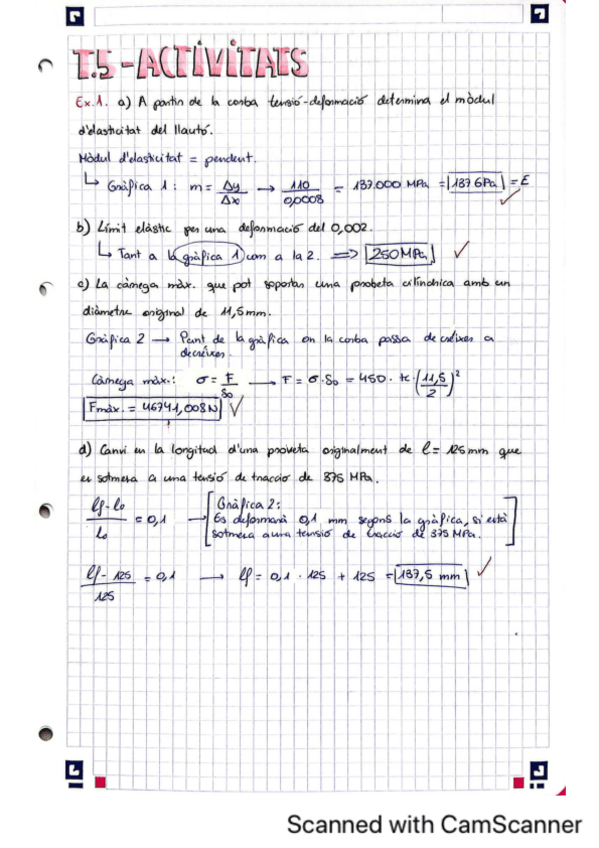 T.5 - ACTIVITATS
Ex.1. a) A partir de la corba tensió-deformació determina el mòdul
d'elasticitat del llautó.
Mòdul d'elasticitat = pendent.
↳ Gràfica 1: m = Δy/Δx → 110/0,0008 = 137.000 MPa = 137 GPa = E
b) Límit elàstic per una deformació del 0,002.
↳ Tant a la gràfica 1 com a la 2. ⇒ 250 MPa
c) La càrrega màx. que pot soportar una probeta cilíndrica amb un
diàmetre original de 11,5mm.
Gràfica 2 → Punt de la gràfica on la corba passa de créixer a
decréixer.
Càrrega màx.: σ = F/S₀ → F = σ·S₀ = 450 · π · (11,5/2)²
Fmàx. = 46741,008N
d) Canvi en la longitud d'una proveta originalment de l = 125mm que
es sotmesa a una tensió de tracció de 375 MPa.
(lf - lo)/lo = 0,1 → [Gràfica 2:
Es deformarà 0,1 mm segons la gràfica, si està
sotmesa a una tensió de tracció de 375 MPa.]
(lf - 125)/125 = 0,1 → lf = 0,1 · 125 + 125 = 137,5 mm
Scanned with CamScanner